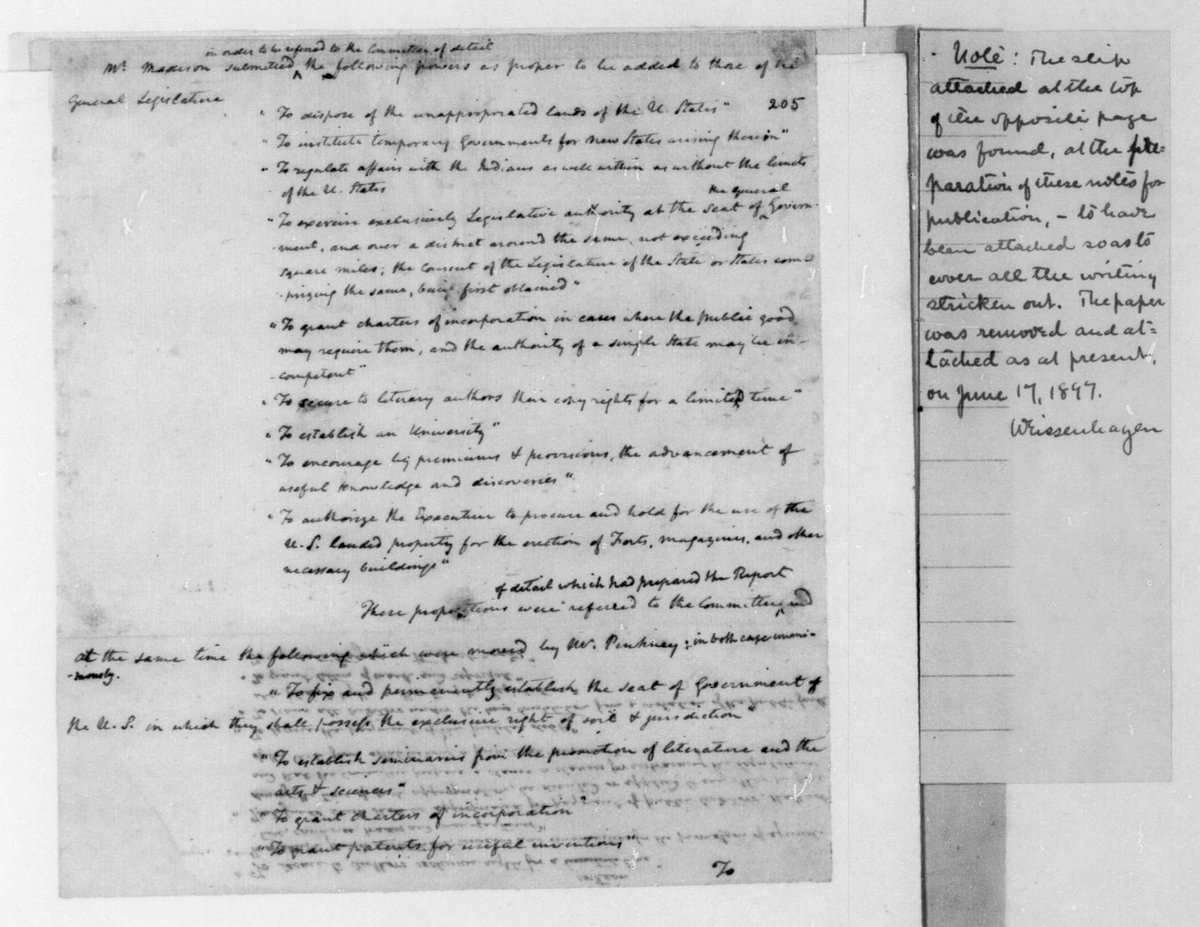 in order to be referred to the Committee of detail
Mr. Madison submitted the following powers as proper to be added to those of the
General Legislature
205
"To dispose of the unappropriated lands of the U. States"
"To institute temporary Governments for new States arising therein"
"To regulate affairs with the Indians as well within as without the limits
of the U. States
the General
"To exercise exclusively Legislative authy at the seat of Govern-
ment, and over a district around the same, not exceeding
square miles; the Consent of the Legislature of the State or States com-
prizing the same, being first obtained"
"To grant charters of incorporation in cases where the public good
may require them, and the authority of a single State may be in-
competent"
"To secure to literary authors their copy rights for a limited time"
"To establish an University"
"To encourage by premiums & provisions, the advancement of
useful knowledge and discoveries"
"To authorize the Executive to procure and hold for the use of the
U. S. landed property for the erection of Forts, magazines, and other
necessary buildings"
of detail which had prepared the Report
These propositions were referred to the Committee and
at the same time the following which were moved by Mr. Pinkney: in both cases unani-
-mously.
"To fix and permanently establish the seat of Government of
the U. S. in which they shall possess the exclusive right of soil & jurisdiction"
"To establish seminaries for the promotion of literature and the
arts & sciences"
"To grant charters of incorporation"
"To grant patents for useful inventions"
To
Note: The slip
attached at the top
of the opposite page
was found, at the pre-
paration of these notes for
publication, - to have
been attached so as to
cover all the writing
stricken out. The paper
was removed and at-
tached as at present,
on June 17, 1897.
Weissenhagen